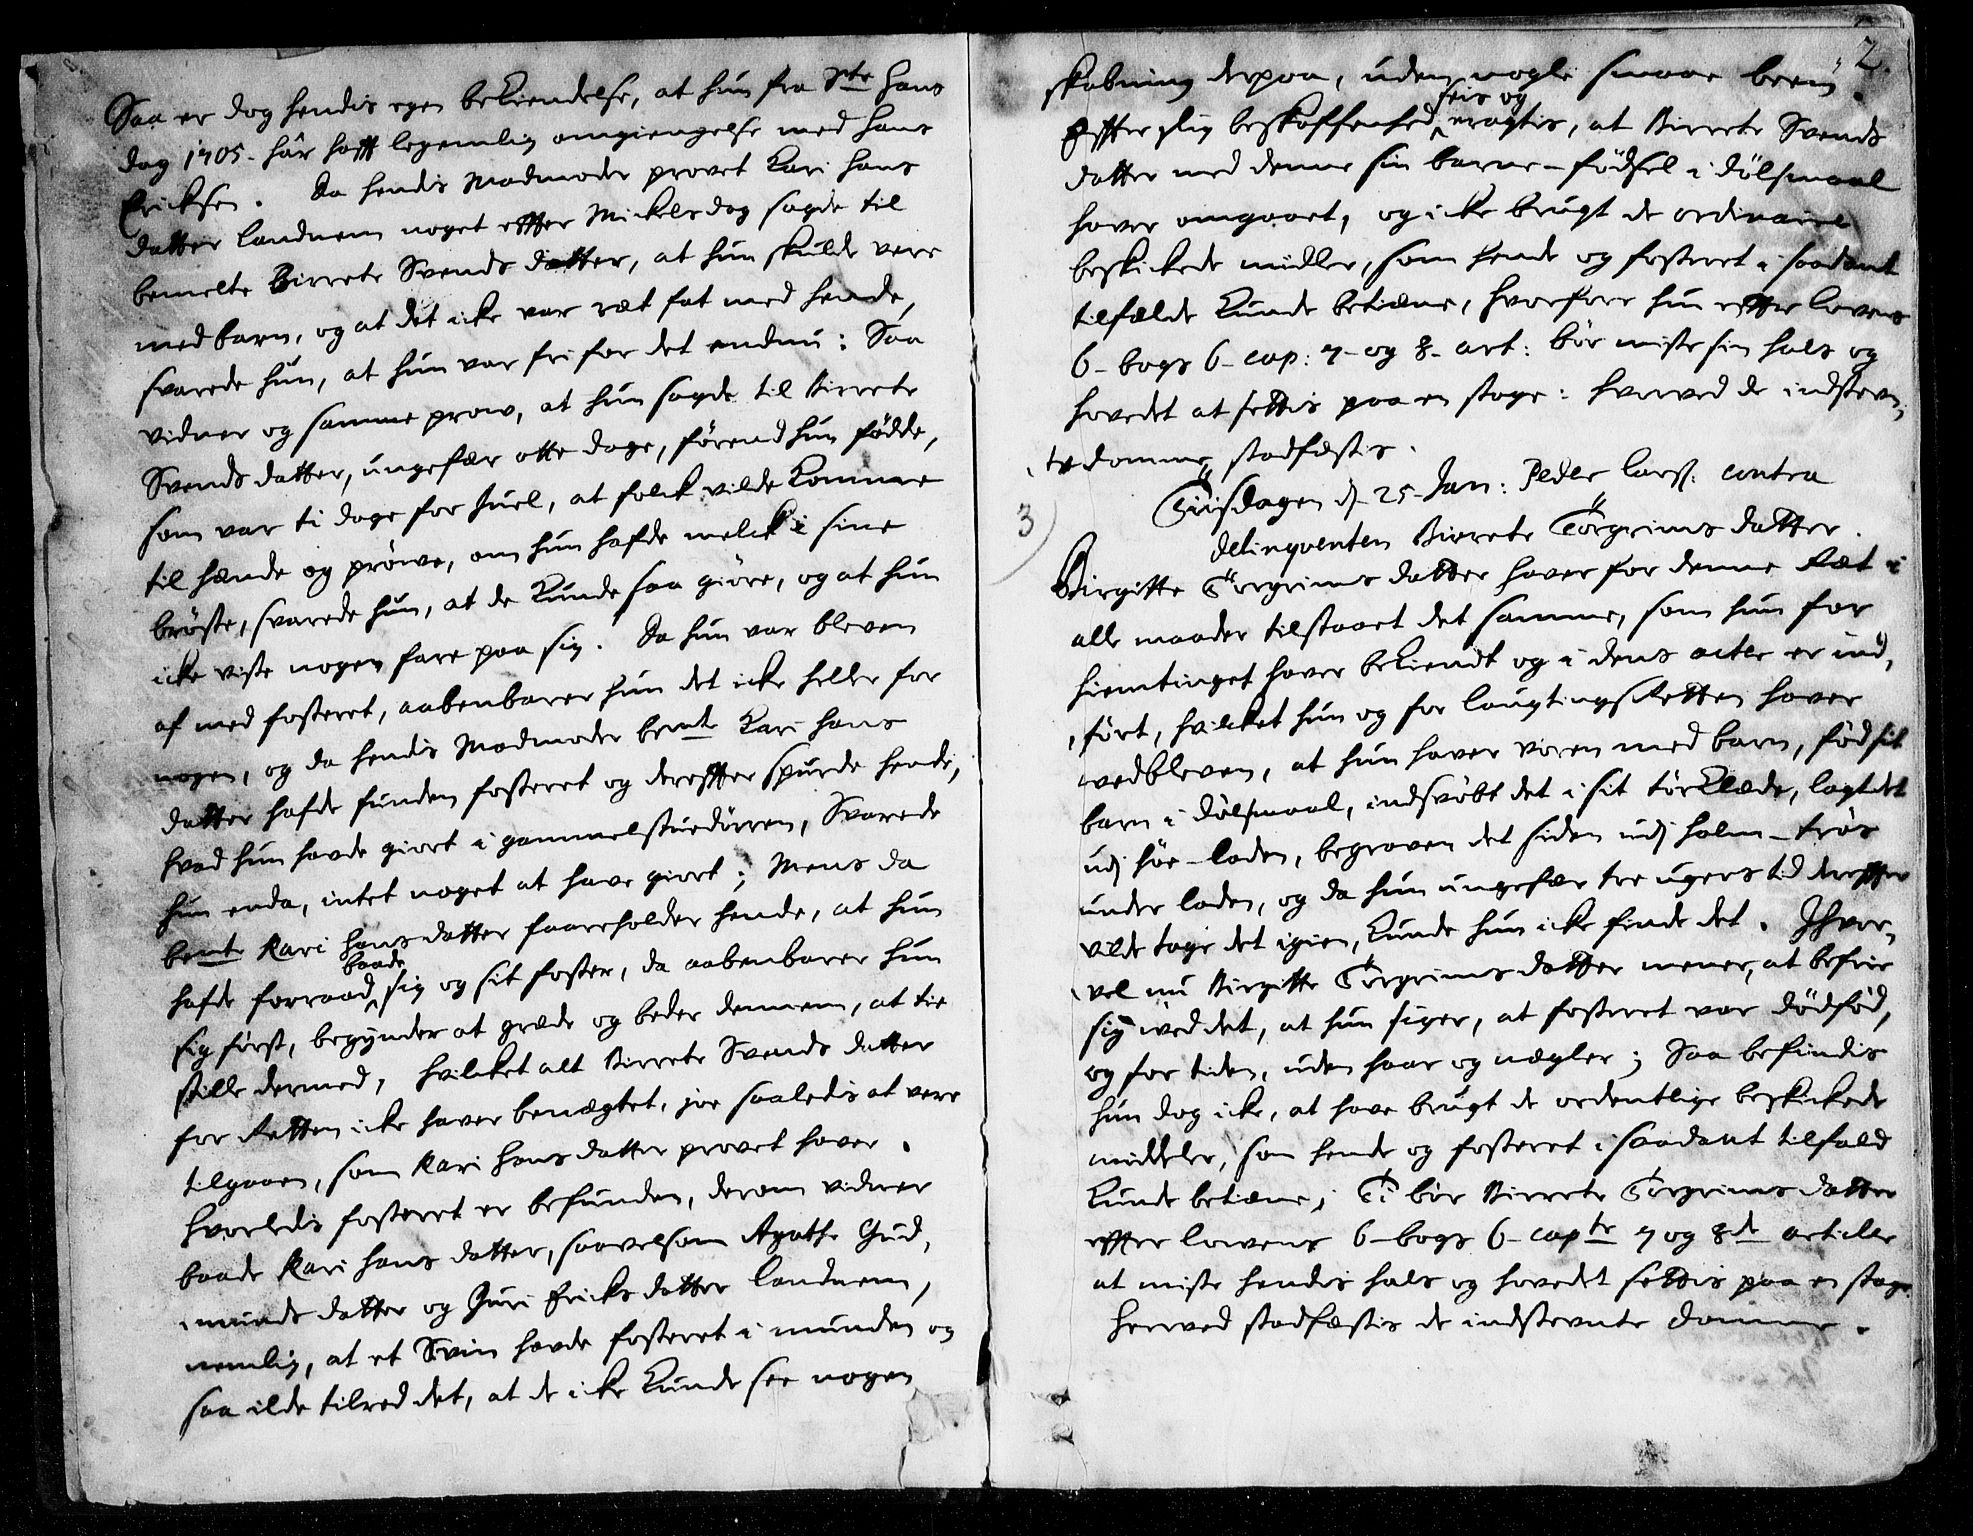 Saa er dog hendis egen bekiendelse, at hun fra Ste Hans
dag 1705. här hafft legemlig omgiengelse med Hans
Ericksen. Da hendis Madmoder provet Kari Hans
datter Landnem noget effter Mickelsdag sagde til
bemelte Birrete Svends datter, at hun skulde vere
med barn, og at det icke var ræt fat med hende,
svarede hun, at hun var fri for det endnu: Saa
vidner og samme prow, at hun sagde til Birrete
Svends datter, ungefær otte dage, førend hun fødde,
som var ti dage for Juel, at folck vilde komme
til hende og prøwe, om hun hafde melck i sine
brøste, svarede hun, at de kunde saa giøre, og at hun
icke viste nogen fare paa sig. Da hun var bleven
af med fosteret, aabenbarer hun det icke heller for
nogen, og da hendis Madmoder bemte Kari Hans
datter hafde funden fosteret og dereffter spurde hende,
hvad hun havde giort i gammelstuedörren, Svarede
hun enda, intet noget at have giort; Mens da
bemte Kari Hans datter faareholder hende, at hun
hafde forraad baade sig og sit foster, da aabenbarer hun
sig først, begynder at græde og beder dennem, at tie
stille dermed, hvilcket alt Birrete Svends datter
for Retten icke haver benægtet, joe saaledis at vere
tilgaaen, som Kari Hans datter provet haver.
Hvorledis fosteret er befunden, derom vidner
baade Kari Hans datter, saavelsom Agathe Gud,
munds datter og Guri Ericks datter Landnem,
nemlig, at et Sviin havde fosteret i munden og
saa ilde tilred det, at de icke kunde see nogen
2.
skabning derpaa, uden nogle smaae been.
Effter slig beskaffenhed seis og eragtis, at Birrete Svends
datter med denne sin barne-födsel i dölsmaal
haver omgaaet, og icke brugt de ordinaire
beskickede midler, som hende og fosteret i saadant
tilfælde kunde betiene, hvorfore hun effter lovens
6- bogs 6- cap: 7- og 8- art: bör miste sin hals og
hovedet at settis paa en stage: hvorved de indstevn,
te domme stadfæstis.
3)
Tiisdagen d 25- Jan: Peder Larss. contra
delinqventen Birrete Törgrims datter.
Birgitte Törgrims datter haver for denne Ræt i
alle maader tilstaaet det samme, som hun for
hiemtinget haver bekiendt og i dens acter er ind,
ført, hvilcket hun og for laugtings Retten haver
vedbleven, at hun haver væren med barn, föd sit
barn i dölsmaal, indsvöbt det i sit törklæde, lagt det
udj höe-laden, begraven det siden udj halm-trös
under laden, og da hun ungefær tre ugers tid dereffter
vilde tage det igien, kunde hun icke finde det. Ihvor,
vel nu Birgitte Törgrims datter mener, at befrie
sig ved det, at hun siger, at fosteret var dödföd,
og for tiden, uden haar og nægler; Saa befindis
hun dog icke, at have brugt de ordentlige beskickede
middeler, som hende og fosteret i saadant tilfald
kunde betiene; Ti bör Birrete Törgrims datter
effter lowens 6-bogs 6- capte 7 og 8de articler
at miste hendis hals og hovedet settis paa en stage.
Herved stadfæstis de indstevnte domme.